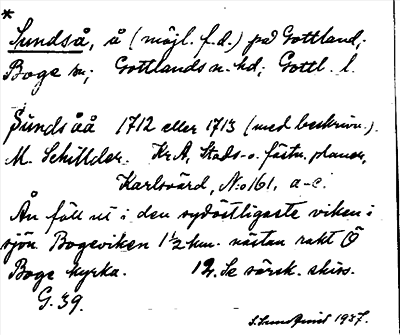 *
Sundså, å (möjl. f.d.) på Gottland;
Boge sn; Gottlands n. hd; Gottl. l.
Sundsåå 1712 eller 1713 (med beskrivn.).
M. Schillder. Kr A, Stads- o. fästn. planer,
Karlsvärd, N:o 161, a-c.
Ån föll ut i den sydöstligaste viken i
sjön Bogeviken 1 1/2 km. nästan rakt Ö
Boge kyrka. 12. Se särsk. skiss.
G. 39.
1937.